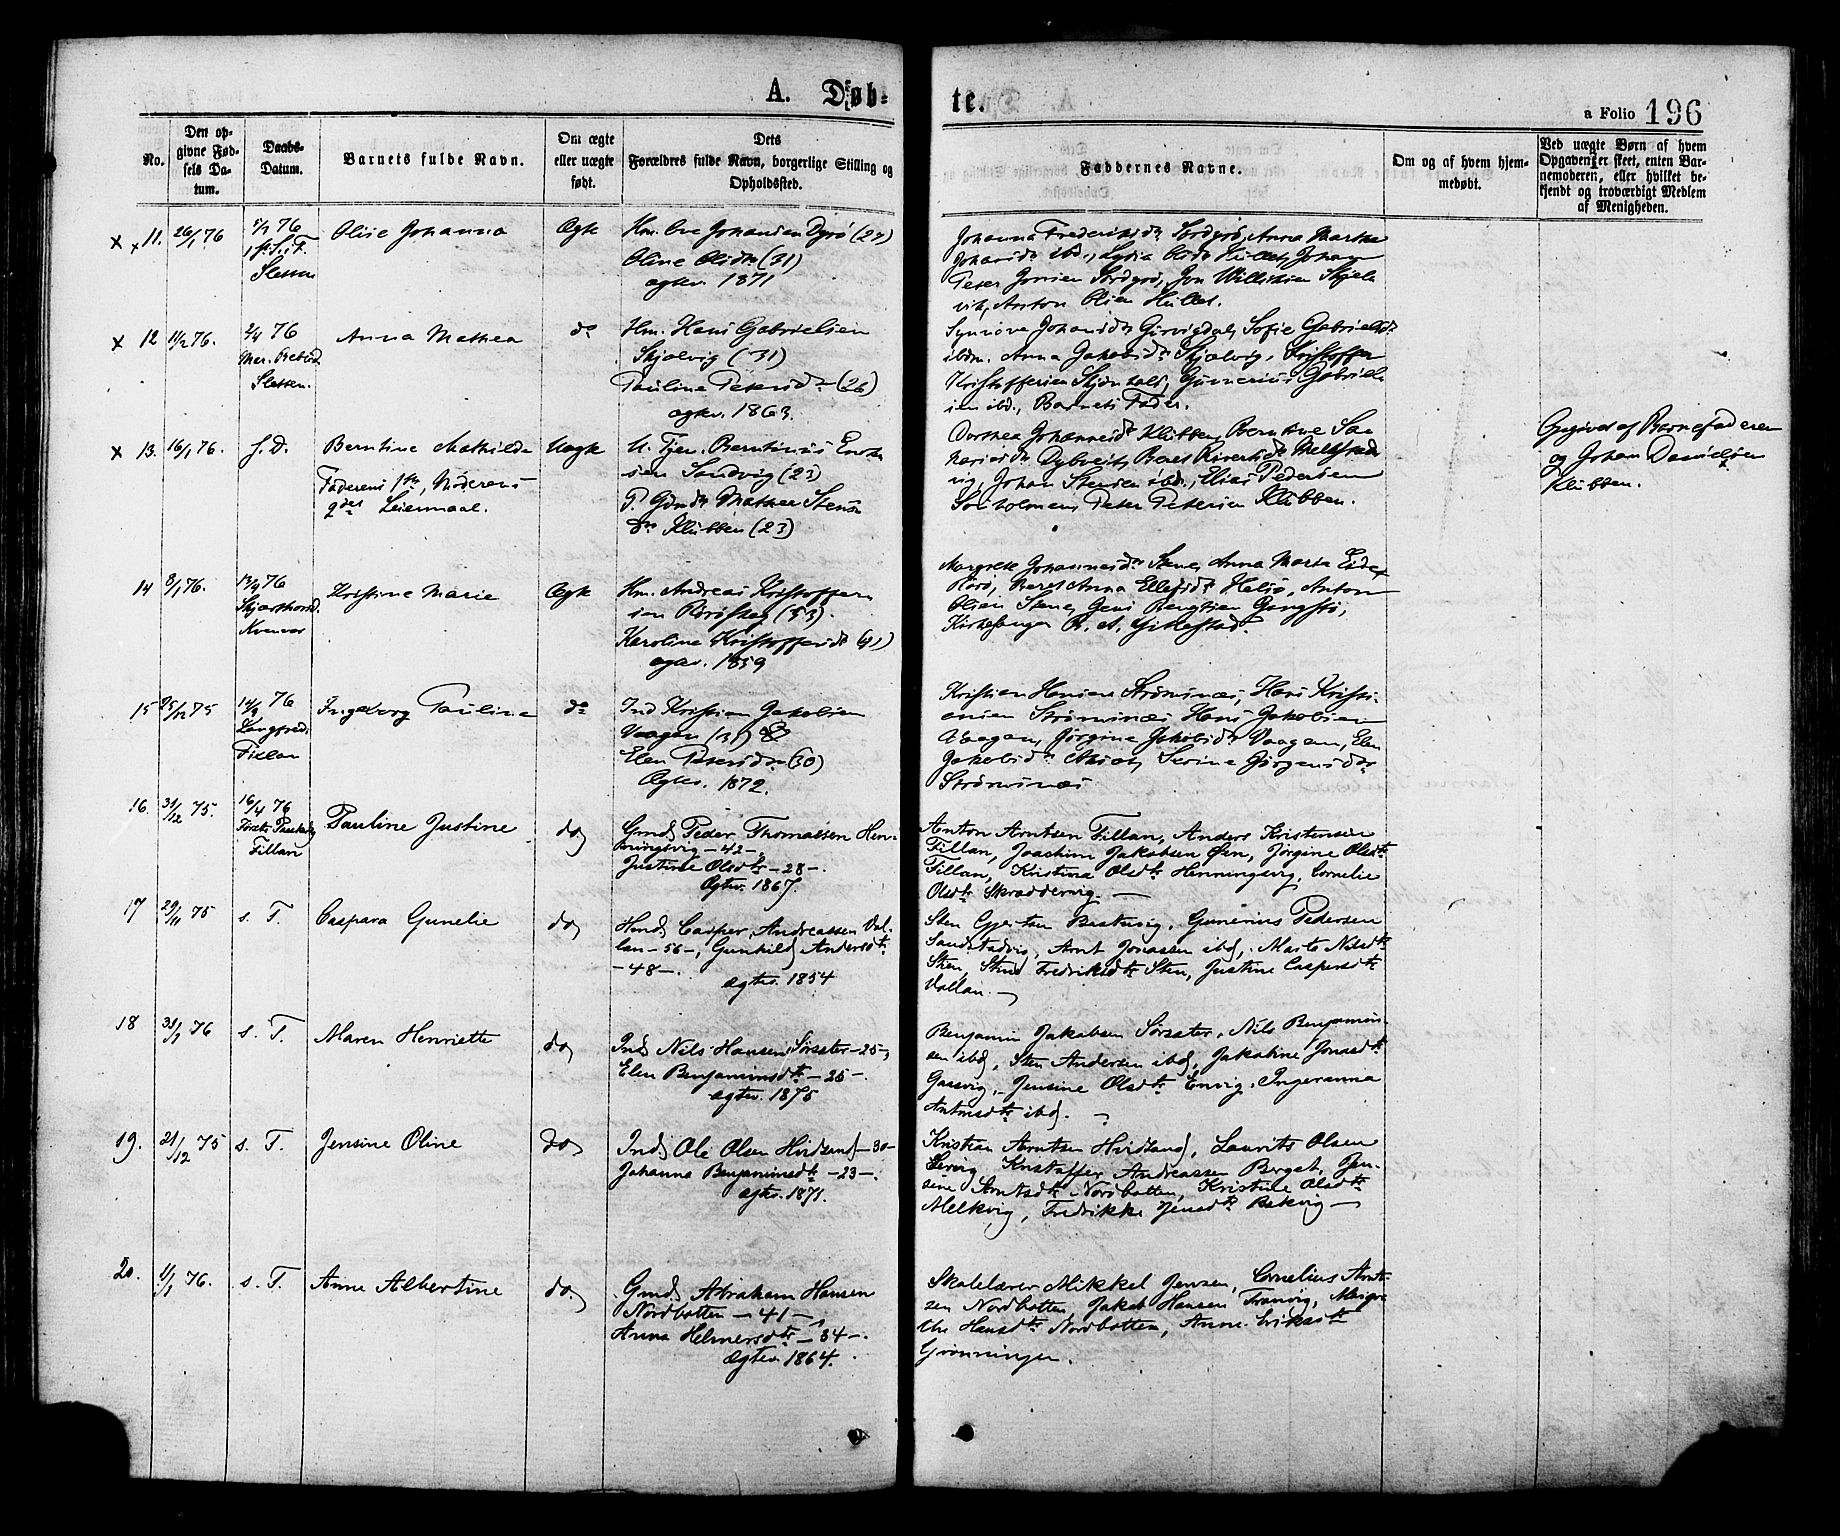 A. Døb-
te.
a Folio 196
No.
Den op-
givne Fød-
sels Da-
tum.
Daabs-
Datum.
Barnets fulde Navn.
Om ægte
eller uægte
født.
Dets
Forældres fulde Navn, borgerlige Stilling og
Opholdssted.
Faddernes Navne.
Om og af hvem hjem-
medøbt.
Ved uægte Børn af hvem
Opgaven er skeet, enten Bar-
nemoderen, eller hvilket be-
kjendt og troværdigt Medlem
af Menigheden.
x x 11. 26/1 76
Olise Johanna
Ægte
Oline Olsdtr (31)
ægtev. 1871
Johanna Frederiksdtr
Anna Martha
x 12 11/2 76.
2/4 76
Anna Mathea
do
Hm. Hans Gabrielsen
Skjælvig (31)
Pauline Petersdtr (26)
ægtev. 1863.
Sofie Gabrielsdtr
ibdm. Anna Jakobsdtr Skjælvig, Kristoffer
Gunnerius Gabriel-
sen ibd., Barnets Fader.
x 13. 16/1 76. s. D.
Berntine Mathilde
Faderens 1ste, Moderens
2det Leiermaal.
Uægte
Sandvig (23)
P. Gmdtr Mathea Stens-
dtr Klubben (23)
Johan Stensen ibd., Elias Pedersen
Peter Petersen Klubben.
Opgivet af Barnefaderen
og Johan Danielsen
Klubben.
14 8/1 76.
17/4 76
Kristine Marie
Ægte
Hm. Andreas Kristoffer-
sen
(53).
Karoline Kristoffersdtr (41)
ægtev. 1859
Margrete Johannesdtr Stene, Anna Marta
Anton
Olsen Stene, Jens Bengtsen
Kirkesanger
15 25/12 75
Fillan
Ingeborg Pauline
do
Ind Kristian Jakobsen
Vaagan (31) &
Elen Petersdtr (30)
Ægtev. 1872.
Kristian Hansen Strømsnæs, Hans Kristi-
ansen Strømsnæs Hans Jakobsen
Vaagan, Jørgine Jakobsdtr Vaagan, Elen
Jakobsdtr
Serine Jørgensdtr
Strømsnæs
16. 31/12 75.
16/4 76
Første Paaskedag
Fillan
Pauline Justine
do
Gmd Peder Thomassen Hen-
ningsvig – 42 –,
Justine Olsdtr – 28 –.
Ægtev. 1867.
Anton Arntsen Fillan, Anders Kristensen
Fillan, Joachim Jakobsen Øen, Jørgine Olsdtr
Fillan, Kristina Olsdtr Henningsvig, Cornelie
Olsdtr Skreddervig. –
17 29/11 75 s. T.
Caspara Gunelie
do
Hmd Casper Andreassen Val-
lan – 56 –, Gunhild Andersdtr
– 48 –.
ægtev. 1854
Sten
Gunerius Pedersen
Sandstadvig, Arnt Jonassen ibd, Marta Nilsdtr
Sten, Stine Fredriksdtr Sten, Justine Caspersdtr
Vallan. –
18 31/1 76 s. T.
Maren Henriette
do
Ind Nils Hansen Sørsæter – 25 –,
Elen Benjaminsdtr – 25 –.
ægtev. 1875
Benjamin Jakobsen Sørsæter, Nils Benjamin-
sen ibd, Sten Andersen ibd, Jakobine Jonasdtr
Gaasvig, Jensine Olsdtr
Ingeranna
Antonsdtr ibd. –
19. 21/12 75 s. T.
Jensine Oline
do
Ind Ole Olsen Hvidsand – 30 –
Johanna Benjaminsdtr – 23 –.
ægtev. 1871.
Kristian Arntsen Hvidsand, Laurits Olsen
Kristoffer Andreassen Berget, Jen-
sine Arntsdtr Nordbotten, Kristine Olsdtr
Melkvig, Fredrikke Jensdtr Bekvig –
20. 11/1 76. s. T.
Anne Albertine
do
Gmd Abraham Hansen
Nordbotten – 41 –,
Anna Helmersdtr – 34 –.
Ægtev. 1864.
Skolelærer Mikkel Jensen, Cornelius Arnt-
sen Nordbotten, Jakob Hansen Tranvig, Margre-
the Hansdtr Nordbotten, Anne Eriksdtr
Grønningen.